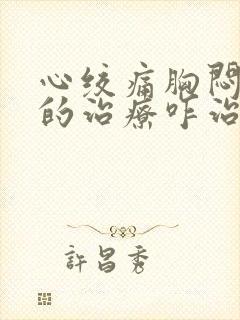 心绞痛胸闷
的治疗咋治
許昌秀